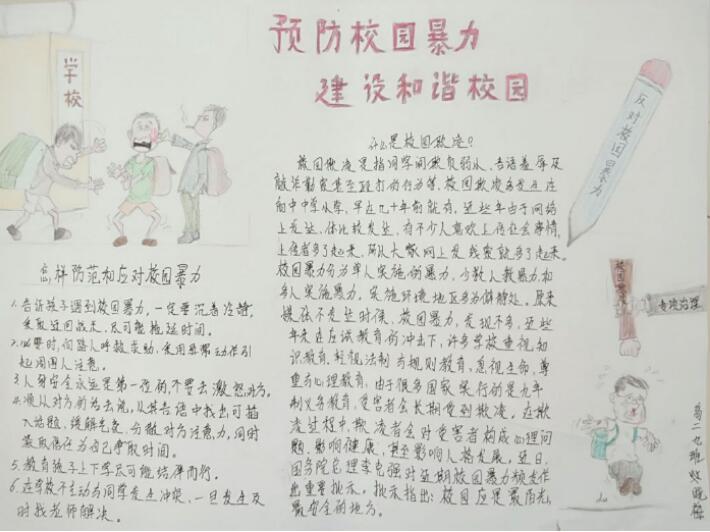 预防校园暴力
建设和谐校园
学校
反对校园暴力
什么是校园欺凌?
校园欺凌是指同学间欺负弱小、言语羞辱及
敲诈勒索甚至殴打的行为等,校园欺凌多发生在
的中中学小学,早在几十年前就有,近些年由于网络
上发达,体比较发生,有不少人喜欢上传社会事情,
上传者多了起来,所以大家网上发现就多了起来。
校园暴力分为单人实施的暴力,少数人数暴力和
多人实施暴力,实施环境地区多为僻静处。原来
媒体不发达时候,校园暴力,发现不多,近些
年来在应试教育的冲击下,许多学校重视知
识教育,轻视法制与规则教育,忽视生命,尊
重与心理教育,由于很多国家实行的是九年
制义务教育,受害者会长期受到欺凌。在欺
凌过程中欺凌者会对受害者构成心理问
题,影响健康,甚至影响人格发展。近日,
国务院总理李克强对近期校园暴力频发作
出重要批示。批示指出:校园应是最阳光,
最安全的地方。
怎样防范和应对校园暴力
1.告诉孩子遇到校园暴力,一定要沉着冷静,
采取迂回战术,尽可能拖延时间。
2.必要时,向路人呼救求助,使用异常动作引
起周围人注意。
3.人身安全永远是第一位的,不要去激怒对方。
4.顺从对方的话去说,从其言语中找出可插
入话题,缓解气氛,分散对方注意力,同时
获取信任为自己争取时间。
5.教育孩子上下学尽可能结伴而行。
6.在学校不主动与同学发生冲突,一旦发生及
时找老师解决。
校园暴力
专项治理
高二九班